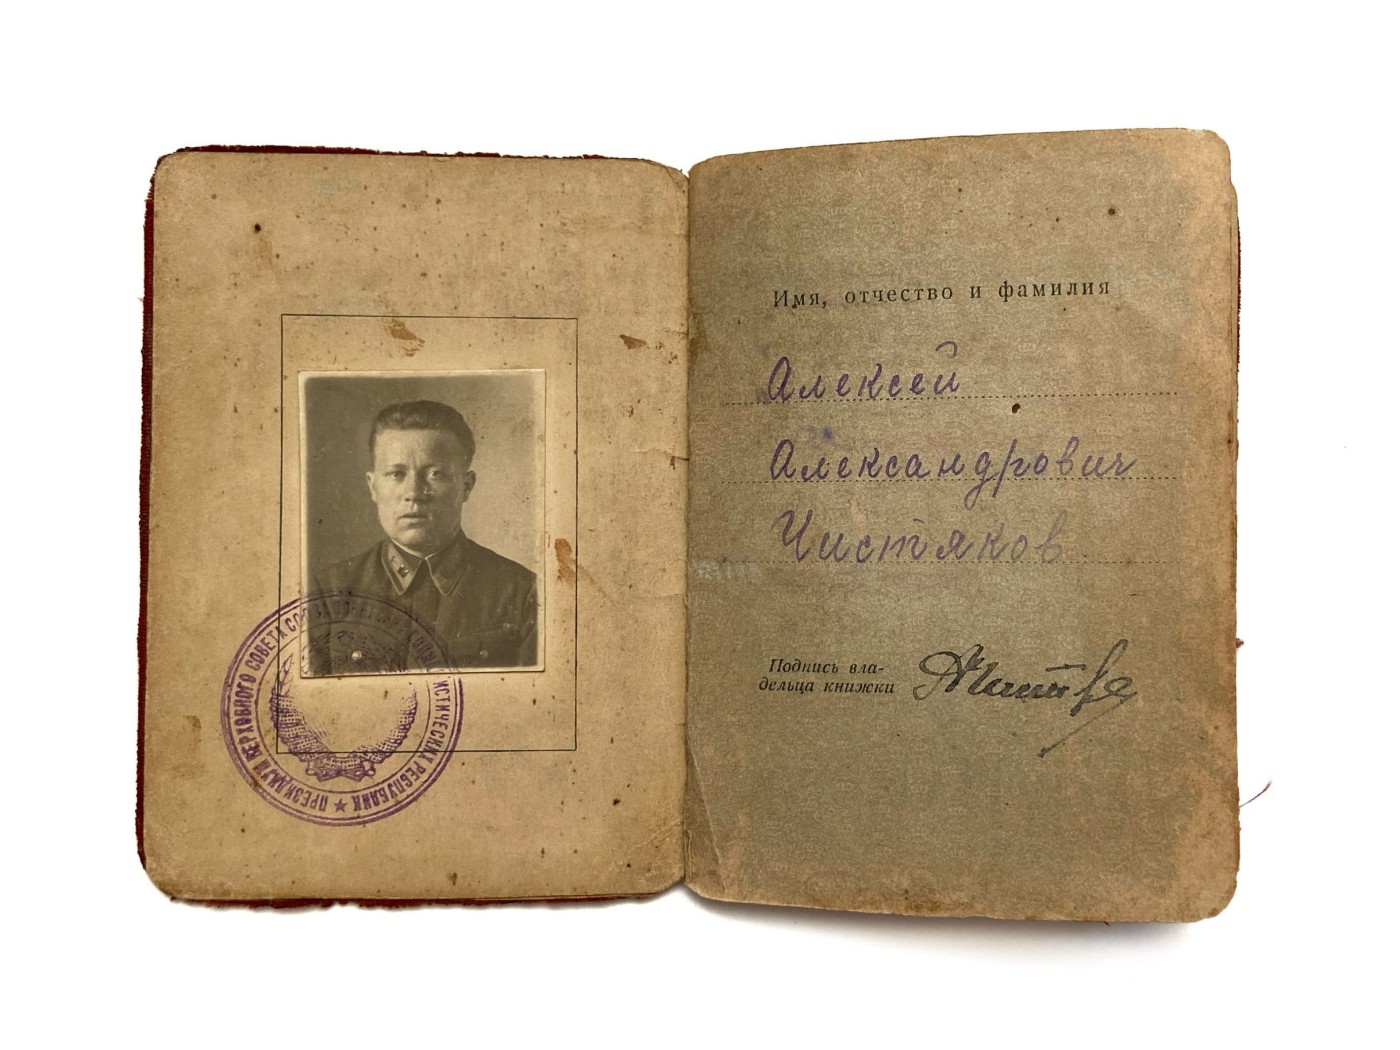 ПРЕЗИДИУМ ВЕРХОВНОГО СОВЕТА СОЮЗА СОВЕТСКИХ СОЦИАЛИСТИЧЕСКИХ РЕСПУБЛИК ★
Имя, отчество и фамилия
Алексей
Александрович
Чистяков
Подпись вла-
дельца книжки